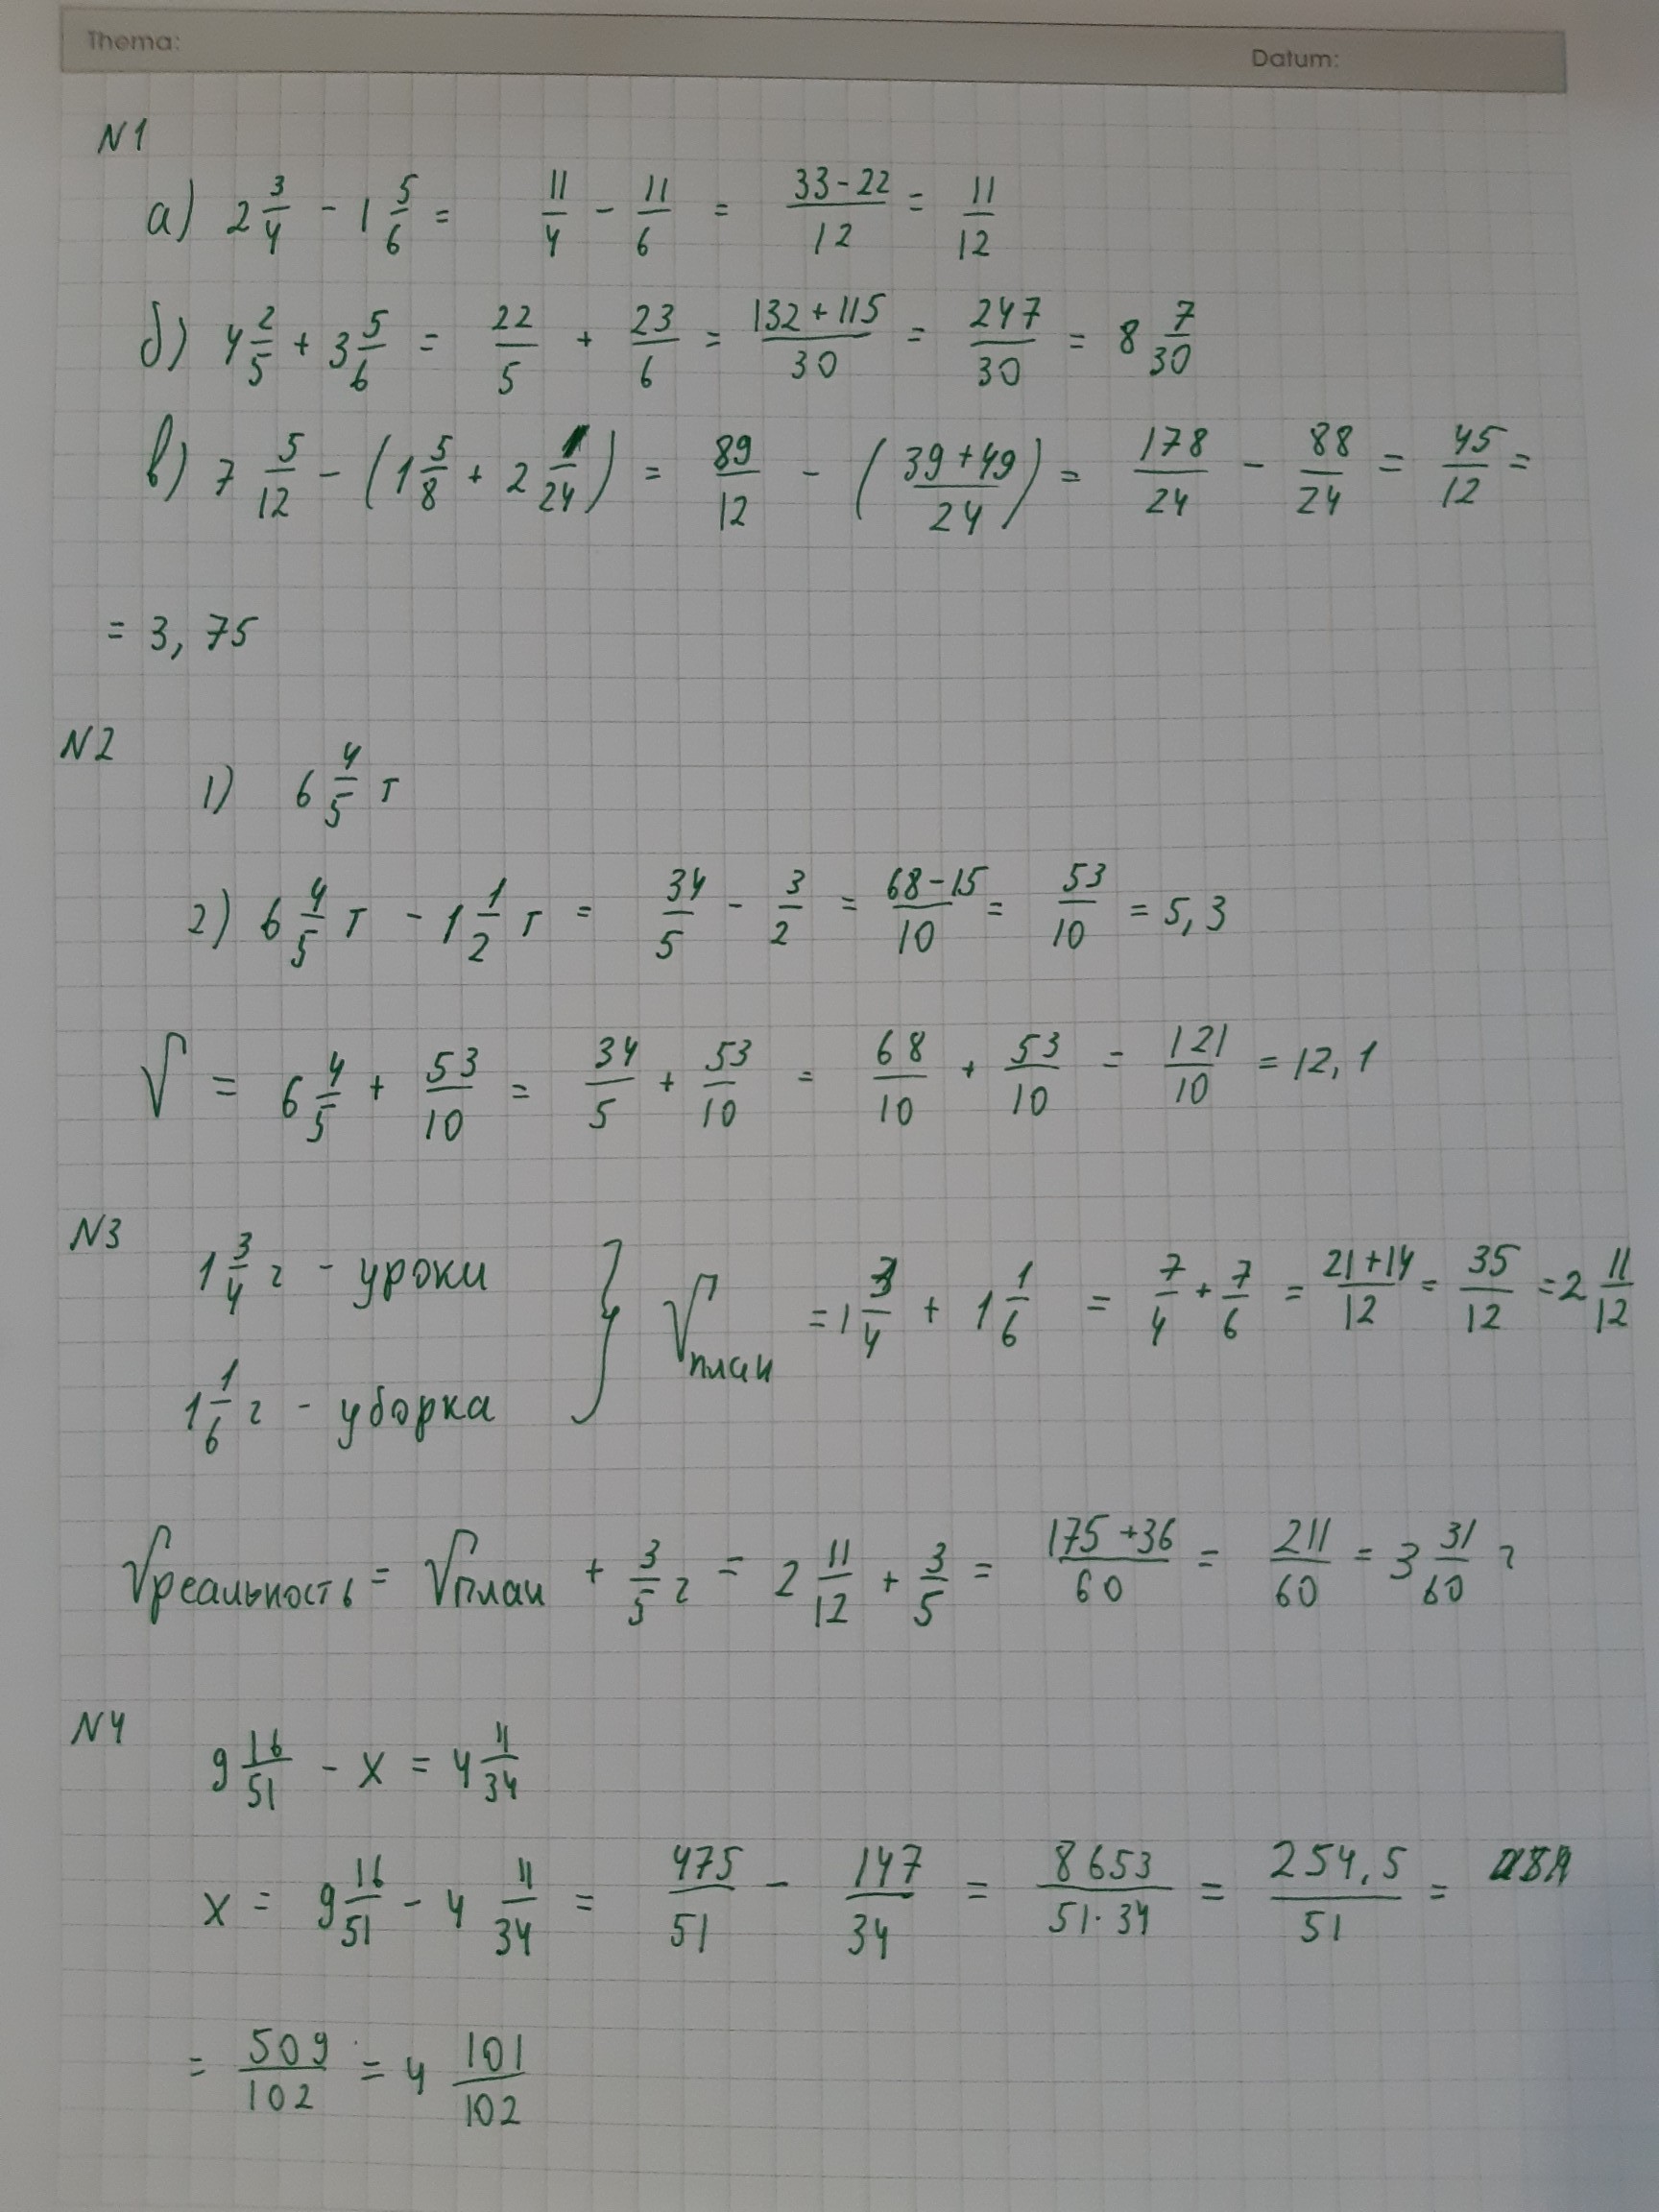 Thema:
Datum:
N1
а) 2 3/4 - 1 5/6 = 11/4 - 11/6 = (33-22)/12 = 11/12
б) 4 2/5 + 3 5/6 = 22/5 + 23/6 = (132+115)/30 = 247/30 = 8 7/30
в) 7 5/12 - (1 5/8 + 2 1/24) = 89/12 - ((39+49)/24) = 178/24 - 88/24 = 45/12 =
= 3,75
N2
1) 6 4/5 т
2) 6 4/5 т - 1 1/2 т = 34/5 - 3/2 = (68-15)/10 = 53/10 = 5,3
√ = 6 4/5 + 53/10 = 34/5 + 53/10 = 68/10 + 53/10 = 121/10 = 12,1
N3
1 3/4 г - уроки
1 1/6 г - уборка
} √план = 1 3/4 + 1 1/6 = 7/4 + 7/6 = (21+14)/12 = 35/12 = 2 11/12
√реальность = √план + 3/5 г = 2 11/12 + 3/5 = (175+36)/60 = 211/60 = 3 31/60 г
N4
9 16/51 - x = 4 11/34
x = 9 16/51 - 4 11/34 = 475/51 - 147/34 = 8653/(51·34) = 254,5/51 =
= 509/102 = 4 101/102